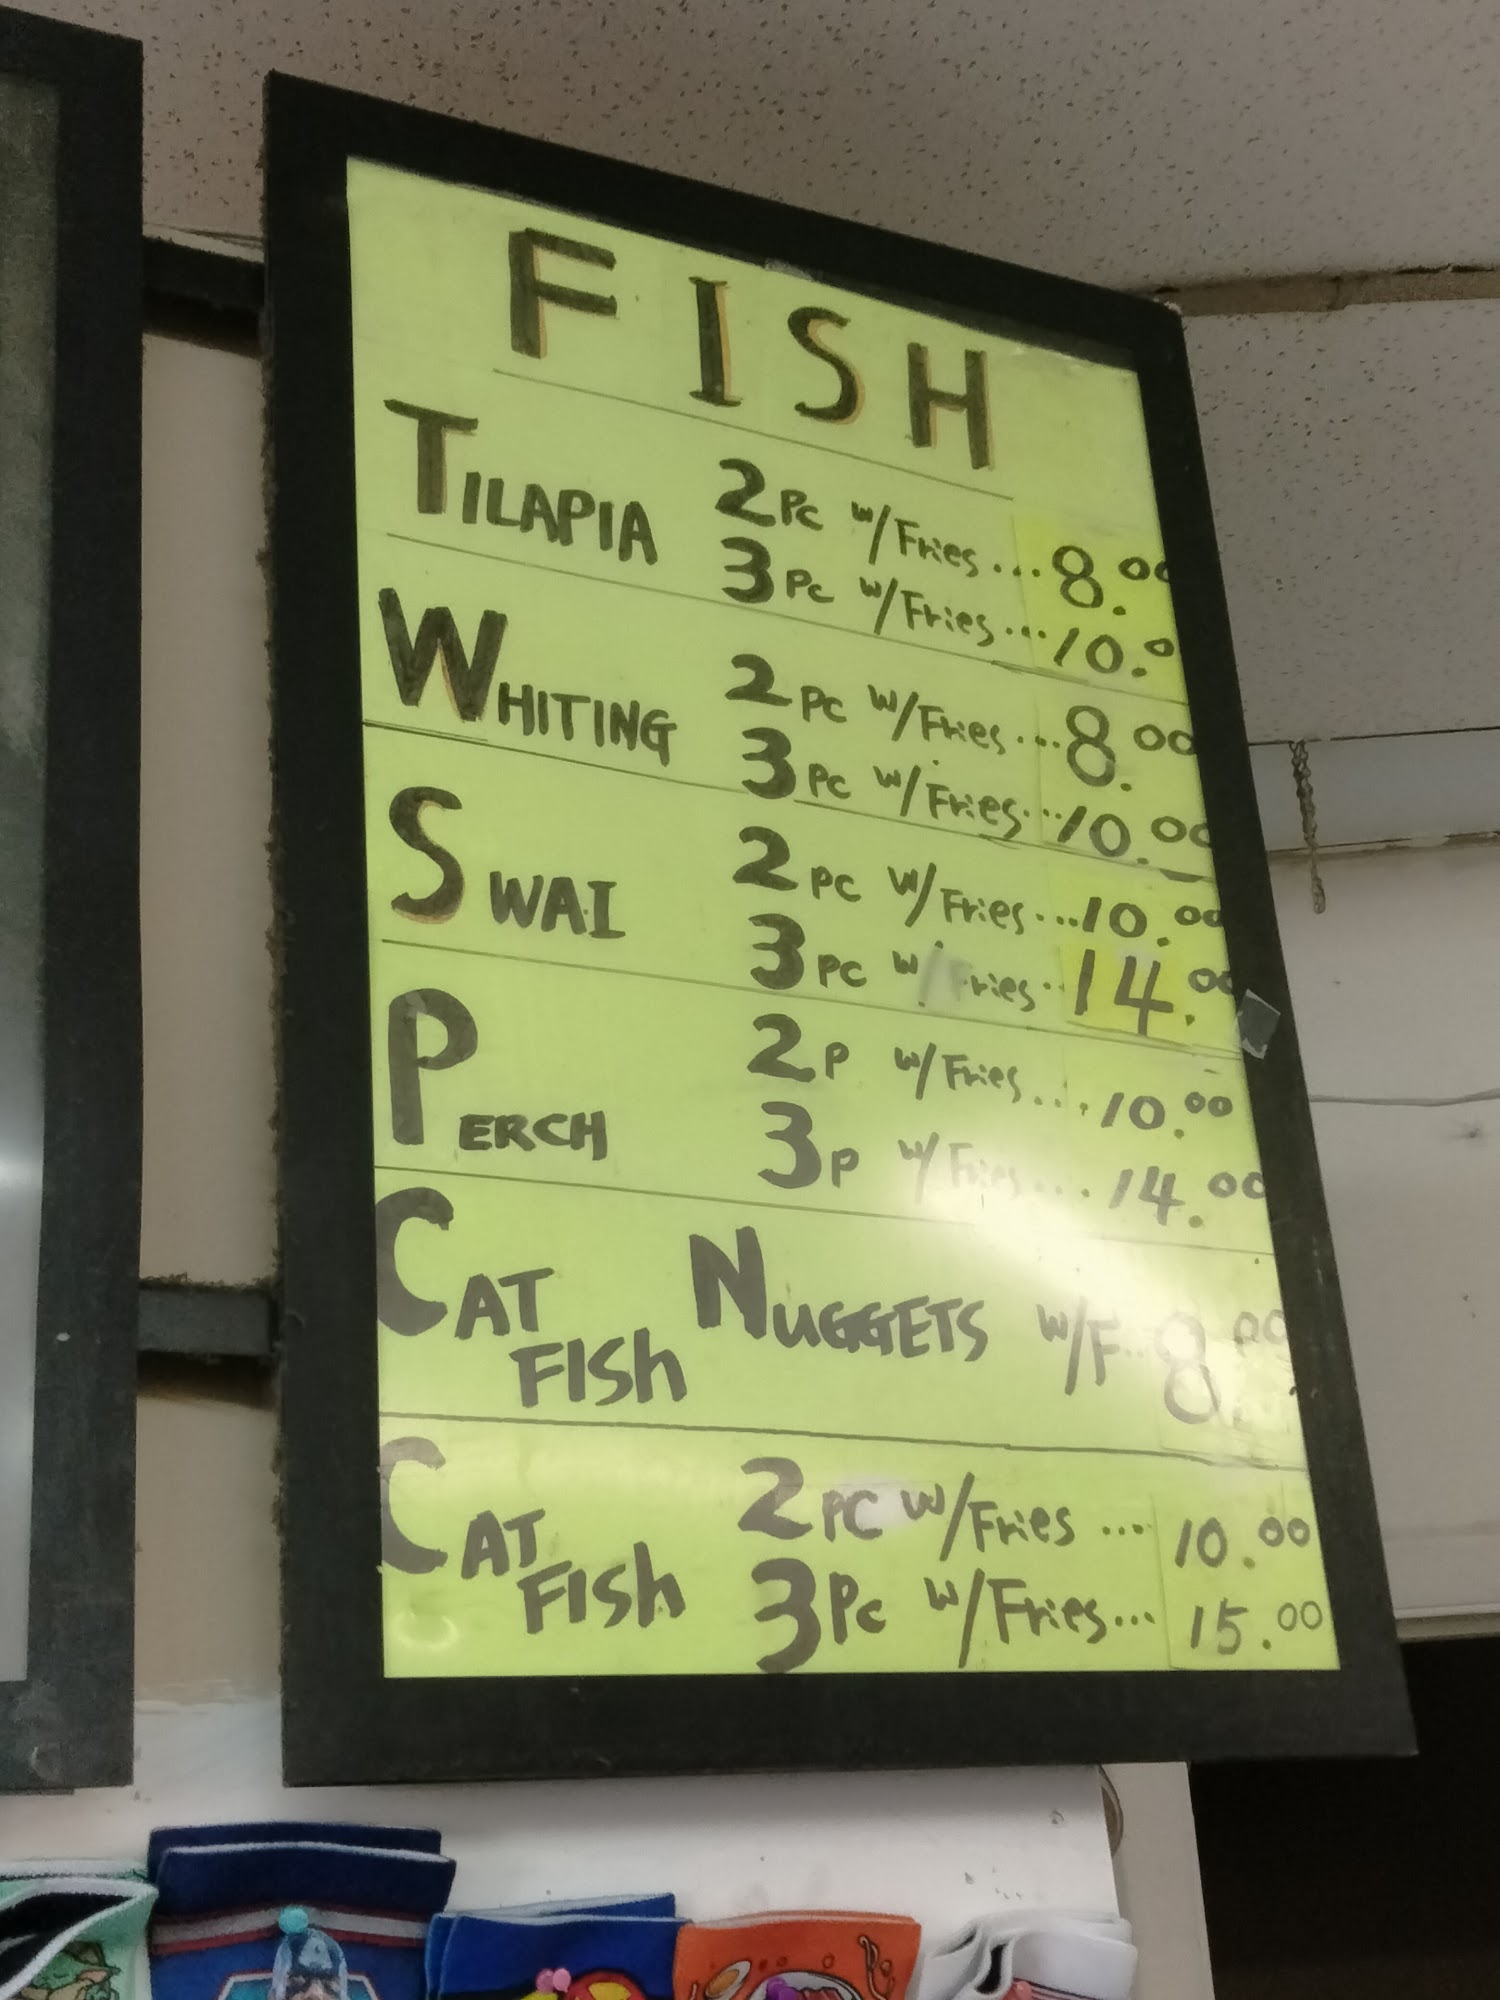 FISH
TILAPIA 2Pc w/Fries...8.00
3Pc w/Fries...10.0
WHITING 2Pc w/Fries...8.00
3Pc w/Fries...10.00
SWAI 2PC w/Fries...10.00
3PC w/Fries..14.00
PERCH 2P w/Fries...10.00
3P w/Fries...14.00
CAT FISh NUGGETS w/F..8.00
CAT FISh 2PC w/Fries....10.00
3Pc w/Fries...15.00